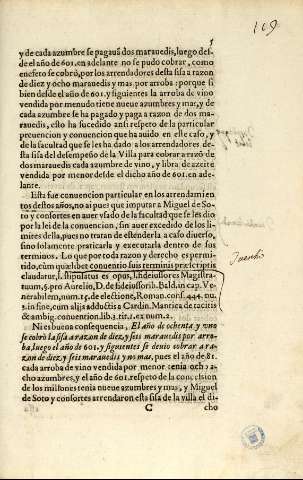 109
5
y de cada azumbre se pagauã dos marauedis, luego des-
de el año de 601. en adelante no se pudo cobrar, como
en efeto se cobrò, por los arrendadores desta sisa a razon
de diez y ocho marauedis y mas por arroba: porque si
bien desde el año de 601. y siguientes la arroba de vino
vendida por menudo tiene nueue azumbres y mas, y de
cada azumbre se ha pagado y paga a razon de dos ma-
rauedis, esto ha sucedido ansi respeto de la particular
preuencion y conuencion que ha auido en este caso, y
de la facultad que se les ha dado a los arrendadores des-
ta sisa del desempeño de la Villa para cobrar a razõ de
dos marauedis cada azumbre de vino, y libra de azeite
vendida por menor desde el dicho año de 601. en ade-
lante.
Esta fue conuencion particular en los arrendamien
tos destos años, no ai pues que imputar a Miguel de So-
to y consortes en auer vsado de la facultad que se les dio
por la lei de la conuencion, sin auer excedido de los li-
mites della, pues no tratan de estenderla a caso diuerso,
sino solamente praticarla y executarla dentro de sus
terminos. Lo que por toda razon y derecho es permi-
tido, cùm quælibet conuentio suis terminis præscriptis
claudatur, l. stipulatus es opus, l. fideiussores Magistra-
tuum, §. pro Aurelio, D. de fideiussorib. Bald. in cap. Ve-
nerabilem, num. 15. de electione, Roman. cons. 444. nu.
in fine, cum alijs adductis à Cardin. Mantica de tacitis
& ambig. conuention. lib. 3. tit. 1. ex num. 2.
Ni es buena consequencia, El año de ochenta y vno
se cobrò la sisa a razon de diez y seis marauedis por arro-
ba, luego el año de 601. y siguientes se deuio cobrar a ra-
zon de diez y seis marauedis y no mas, pues el año de 81.
cada arroba de vino vendida por menor tenia ocho a-
cho azumbres, y el año de 601. respeto de la concession
de los millones tenia nueue azumbres y mas, y Miguel
de Soto y consortes arrendaron esta sisa de la villa el di-
C
cho